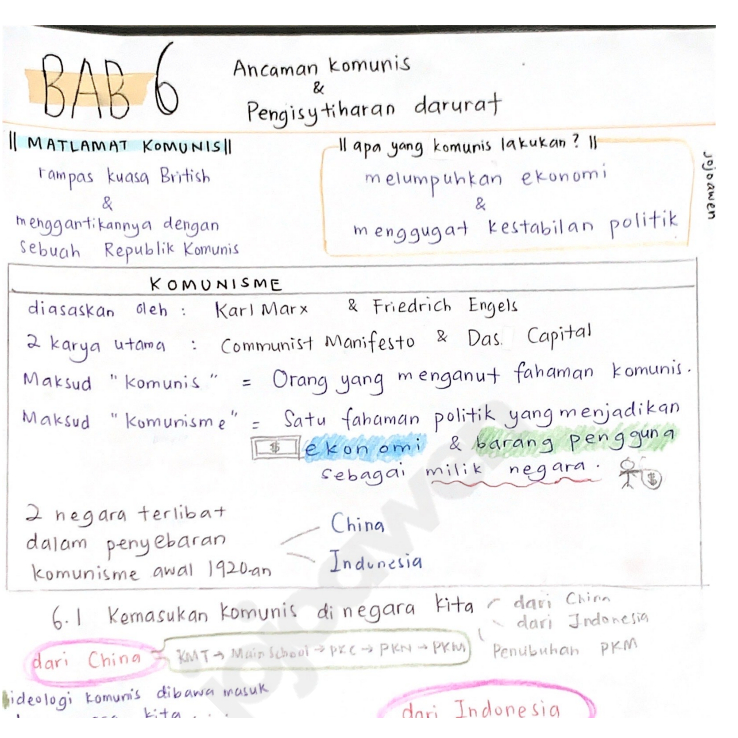 BAB 6
Ancaman komunis
&
Pengisytiharan darurat
|| MATLAMAT KOMUNIS ||
rampas kuasa British
&
menggantikannya dengan
sebuah Republik Komunis
|| apa yang komunis lakukan? ||
melumpuhkan ekonomi
&
menggugat kestabilan politik
jojoawen
KOMUNISME
diasaskan oleh : Karl Marx & Friedrich Engels
2 karya utama : Communist Manifesto & Das. Capital
Maksud "komunis" = Orang yang menganut fahaman komunis.
Maksud "komunisme" = Satu fahaman politik yang menjadikan
$ ekonomi & barang pengguna
sebagai milik negara. $
2 negara terlibat
dalam penyebaran
komunisme awal 1920-an
China
Indonesia
6.1 Kemasukan komunis di negara kita
dari China
dari Indonesia
Penubuhan PKM
dari China
KMT → Main School → PKC → PKN → PKM
ideologi komunis dibawa masuk
kita
dari Indonesia
jojoawen